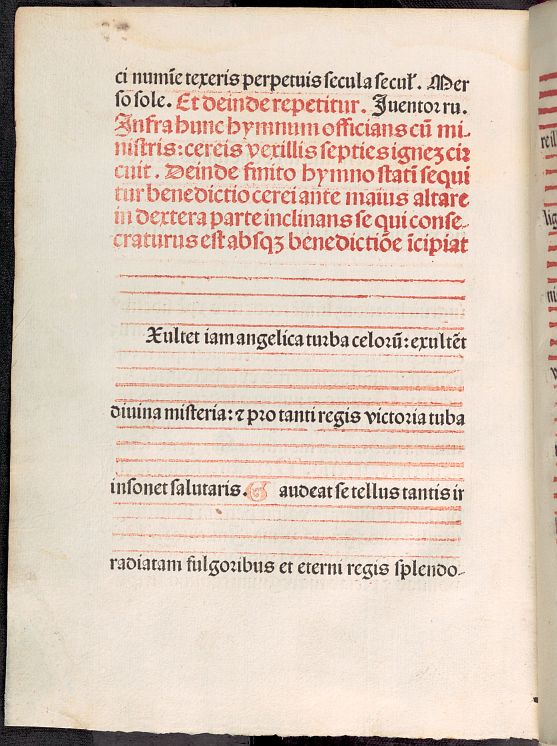 ci numīe texeris perpetuis secula secul̄. Mer
so sole. Et deinde repetitur. Juentor ru.
Infra hunc hymnum officians cū mi-
nistris: cereis vexillis septies ignez cir
cuit. Deinde finito hymno stati sequi
tur benedictio cerei ante maius altare
in dextera parte inclinans se qui conse-
craturus est absqȝ benedictiōe īcipiat
Xultet iam angelica turba celorū: exultēt
diuina misteria: ⁊ pro tanti regis victoria tuba
insonet salutaris. G audeat se tellus tantis ir
radiatam fulgoribus et eterni regis splendo-